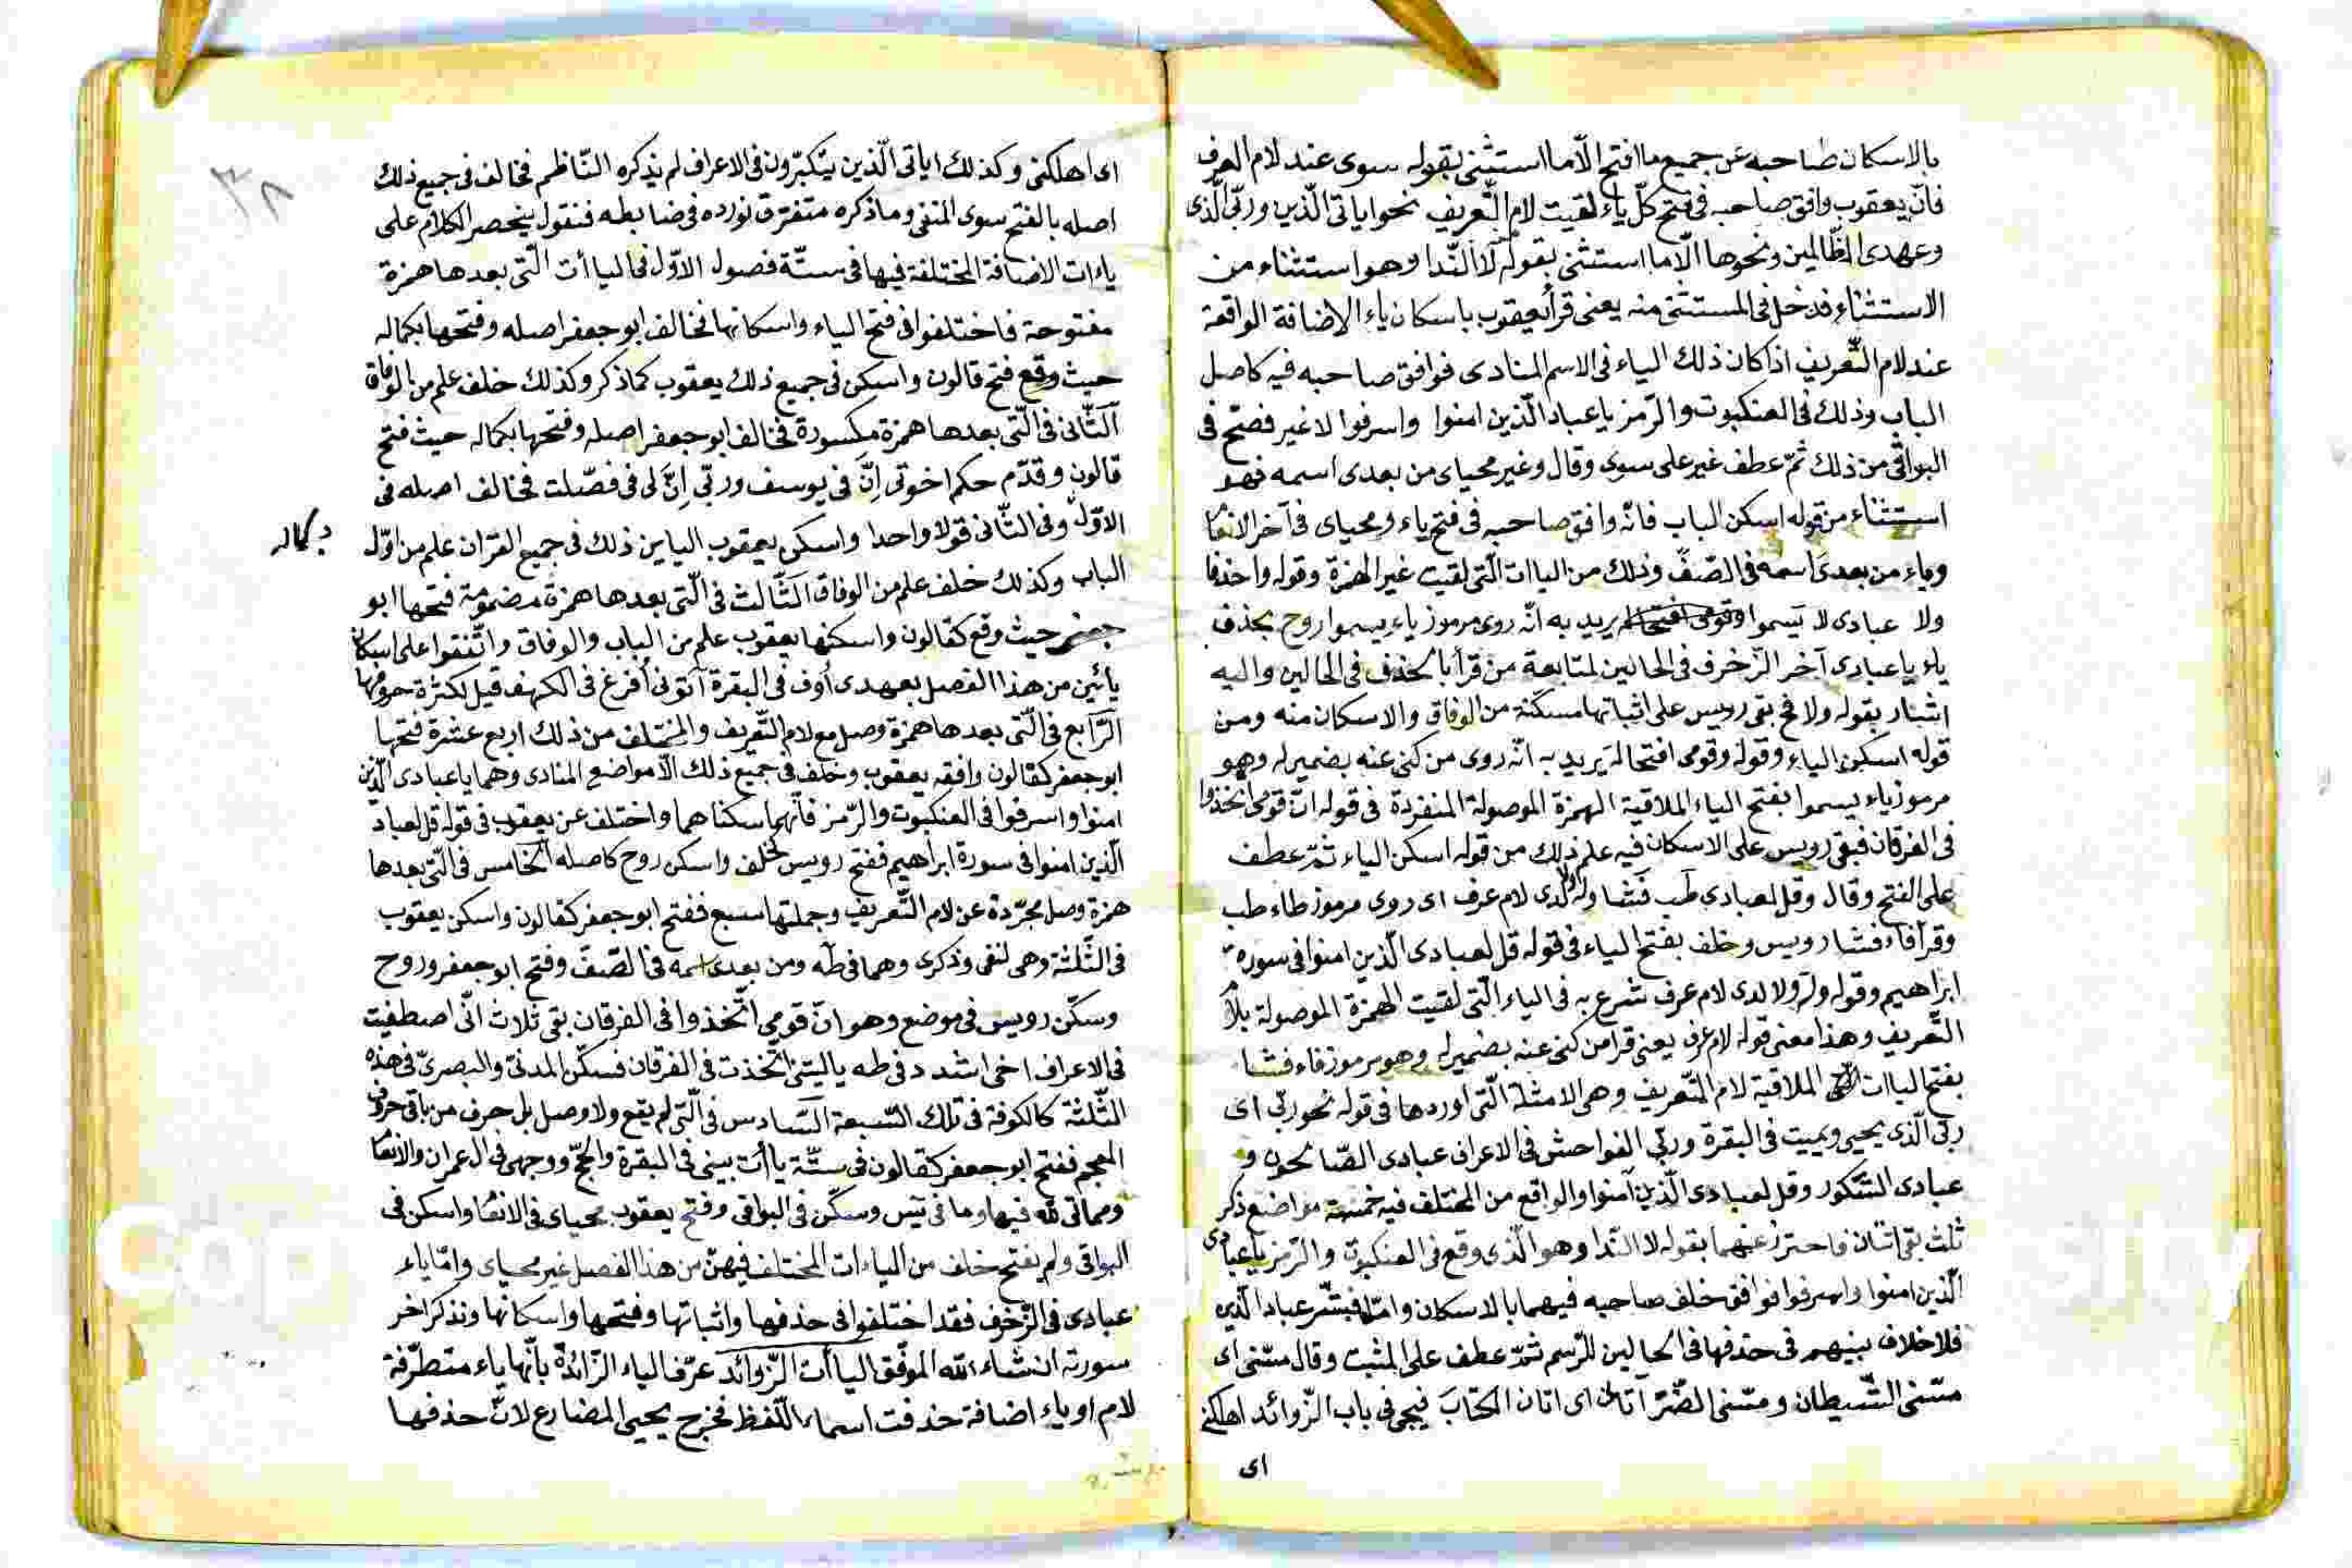 بالاسكان صاحبه عن جميع ما افتح الّا ما استثنى بقوله سوى عند لام العرف
فانّ يعقوب وافق صاحبه فى فتح كلّ ياء لقيت لام التّعريف نحو اياتى الّذين وربّى الّذى
وعهدى الظّالمين ونحوها الّا ما استثنى بقوله لا النّدا وهو استثناء من
الاستثناء فدخل فى المستثنى منه يعنى قرأ يعقوب باسكان ياء الاضافة الواقعة
عند لام التّعريف اذا كان ذلك الياء فى الاسم المنادى فوافق صاحبه فيه كاصل
الباب وذلك فى العنكبوت والزّمر ياعباد الّذين امنوا واسرفوا لا غير فصّح فى
البواقى من ذلك ثمّ عطف غير على سوى وقال وغير محياى من بعدى اسمه فهو
استثناء من قوله اسكن الباب فانّه وافق صاحبه فى فتح ياء ومحياى فى آخر الانعا
وياء من بعدى اسمه فى الصّفّ وذلك من الياات الّتى لقيت غير الهمزة وقوله واحذفا
ولا عبادى لا يسموا وقومى افتحا له يريد به انّه روى مرموز ياء يسموا روح بحذف
ياء ياعبادى آخر الزّخرف فى الحالين لمتابعة من قرأ بالحذف فى الحالين واليه
اشار بقوله ولا فح بقى رويس على اثباتها مسكنة من الوفاق والاسكان منه ومن
قوله اسكن الياء وقوله وقومى افتحا له يريد به انّه روى من كنى عنه بضميره وهو
مرموز ياء يسموا بفتح الياء الملاقية الهمزة الموصولة المنفردة فى قوله انّ قومى اتخذوا
فى الفرقان فبقى رويس على الاسكان فيه علم ذلك من قوله اسكن الياء ثمّ عطف
على الفتح وقال وقل لعبادى طب فشا وله ولا لدى لام عرف اى روى مرموز طاء طب
وقرأ فاء فشا رويس وخلف بفتح الياء فى قوله قل لعبادى الّذين امنوا فى سورة
ابراهيم وقوله وله ولا لدى لام عرف شرع به فى الياء الّتى لقيت الهمزة الموصولة بلا
التّعريف وهذا معنى قوله لام عرف يعنى قرا من كنى عنه بضميره وهو مرموز فاء فشا
بفتح الياات الملاقية لام التّعريف وهى الامثلة الّتى اوردها فى قوله نحو ربّى اى
ربّى الّذى يحيى ويميت فى البقرة وربّى الفواحش فى الاعراف عبادى الصّالحون و
عبادى الشّكور وقل لعبادى الّذين آمنوا والواقع من المختلف فيه خمسة مواضع ذكر
ثلث بقى اثنان فاحترز عنهما بقوله لا النّدا وهو الّذى وقع فى العنكبوت والزّمر ياعبادى
الّذين امنوا واسرفوا فوافق خلف صاحبه فيهما بالاسكان وامّا فبشّر عباد الّذين
فلا خلاف بينهم فى حذفها فى الحالين للرّسم ثمّ عطف على المثبت وقال مسّنى اى
مسّنى الشّيطان ومسّنى الضّرّ آتان اى اتان الكتاب فيجى فى باب الزّوائد اهلكنى
اى
٣٨
اى اهلكنى وكذلك اياتى الّذين يتكبّرون فى الاعراف لم يذكره النّاظم فخالف فى جميع ذلك
اصله بالفتح سوى المنفى وما ذكره متفرق نورده فى ضابطه فنقول ينحصر الكلام على
ياءات الاضافة المختلفة فيها فى ستّة فصول الاوّل فى الياأت الّتى بعدها همزة
مفتوحة فاختلفوا فى فتح الياء واسكانها فخالف ابو جعفر اصله وفتحها بكماله
حيث وقع فتح قالون واسكن فى جميع ذلك يعقوب كما ذكر وكذلك خلف علم من الوفاق
الثّانى فى الّتى بعدها همزة مكسورة فخالف ابو جعفر اصله وفتحها بكماله حيث فتح
قالون وقدّم حكم اخوتى انّ فى يوسف وربّى انّ لى فى فصّلت فخالف اصله فى
الاوّل وفى الثّانى قولا واحدا واسكن يعقوب الياين ذلك فى جميع القرآن علم من اوّل
بكماله
الباب وكذلك خلف علم من الوفاق الثّالث فى الّتى بعدها همزة مضمومة فتحها ابو
جعفر حيث وقع كقالون واسكنها يعقوب علم من الباب والوفاق واتّفقوا على اسكان
يائين من هذا الفصل بعهدى أوف فى البقرة آتونى أفرغ فى الكهف قيل لكثرة حروفها
الرّابع فى الّتى بعدها همزة وصل مع لام التّعريف والمختلف من ذلك اربع عشرة فتحها
ابو جعفر كقالون وافقه يعقوب وخلف فى جميع ذلك الّا مواضع المنادى وهما ياعبادى الّذين
امنوا واسرفوا فى العنكبوت والزّمر فانّهما سكناهما واختلف عن يعقوب فى قوله قل لعباد
الّذين امنوا فى سورة ابراهيم ففتح رويس كخلف واسكن روح كاصله الخامس فى الّتى بعدها
همزة وصل مجرّدة عن لام التّعريف وجملتها سبع ففتح ابو جعفر كقالون واسكن يعقوب
فى الثّلثة وهى لنفى وذكرى وهما فى طه ومن بعدى اسمه فى الصّفّ وفتح ابو جعفر وروح
وسكّن رويس فى موضع وهو انّ قومى اتّخذوا فى الفرقان بقى ثلاث انّى اصطفيت
فى الاعراف اخى اشدد فى طه ياليتنى اتّخذت فى الفرقان فسكّن المدنىّ والبصرىّ فى هذه
الثّلثة كالكوفة فى تلك السّبعة السّادس فى الّتى لم يقع ولا وصل بل حرف من باقى حروف
المعجم ففتح ابو جعفر كقالون فى ستّة ياأت بيتى فى البقرة والحجّ ووجهى فى ال عمران والانعا
ومماتى لله فيها وما فى يس وسكّن فى البواقى وفتح يعقوب محياى فى الانعا واسكن فى
البواقى ولم يفتح خلف من الياءات المختلف فيهنّ من هذا الفصل غير محياى وامّا ياء
عبادى فى الزّخرف فقد اختلفوا فى حذفها واثباتها وفتحها واسكانها ونذكر اخر
سورته انشاء الله الموفّق الياأت الزّوائد عرّف الياء الزّائدة بانّها ياء متطرّفة
لام او ياء اضافة حذفت اسماء اللّفظ فخرج يحيى المضارع لانّ حذفها